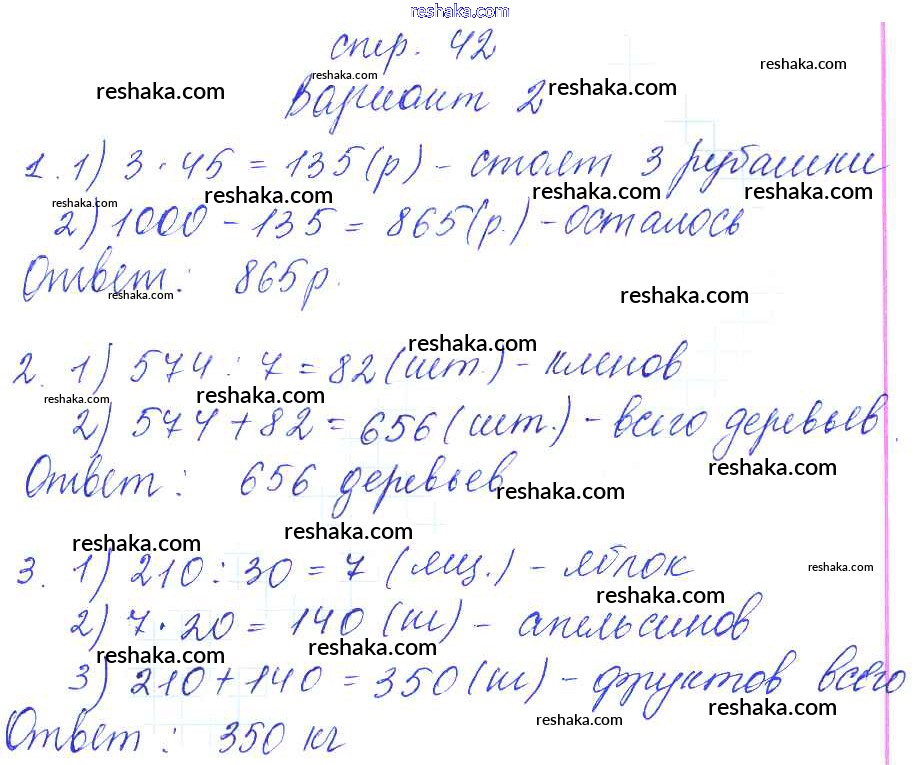 reshaka.com
стр. 42
reshaka.com
reshaka.com
reshaka.com
reshaka.com
Вариант 2
1. 1) 3 · 45 = 135 (р) - стоят 3 рубашки
reshaka.com
reshaka.com
reshaka.com
reshaka.com
2) 1000 - 135 = 865 (р.) - осталось
Ответ: 865 р.
reshaka.com
reshaka.com
reshaka.com
2. 1) 574 : 7 = 82 (шт.) - кленов
reshaka.com
reshaka.com
2) 574 + 82 = 656 (шт.) - всего деревьев.
reshaka.com
Ответ: 656 деревьев
reshaka.com
reshaka.com
reshaka.com
3. 1) 210 : 30 = 7 (ящ.) - яблок
reshaka.com
reshaka.com
2) 7 · 20 = 140 (ш) - апельсинов
reshaka.com
reshaka.com
3) 210 + 140 = 350 (ш) - фруктов всего
reshaka.com
reshaka.com
Ответ: 350 кг